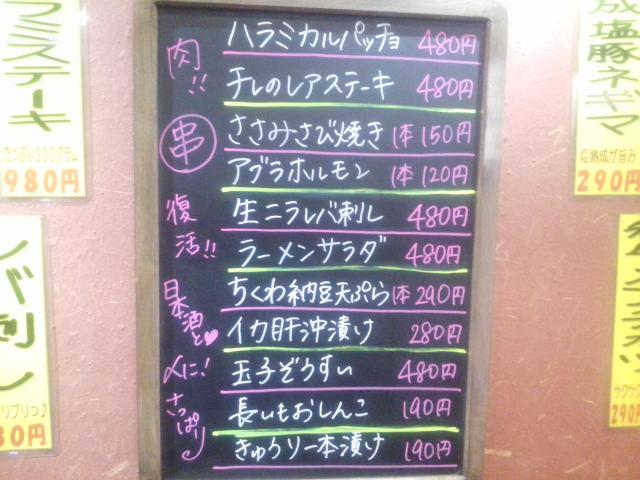 ラミステーキ
たっぷり300グラム
980円
レバ刺し
プリプリっ♪
80円
肉!!
ハラミカルパッチョ 480円
チレのレアステーキ 480円
串
ささみさび焼き 1本 150円
アブラホルモン 1本 120円
復活!!
生ニラレバ刺し 480円
ラーメンサラダ 480円
日本酒と♥
ちくわ納豆天ぷら 1本 290円
イカ肝沖漬け 280円
〆に!
玉子ぞうすい 480円
さっぱり
長いもおしんこ 190円
きゅうり一本漬け 190円
成塩豚ネギマ
塩熟成が旨み
290円
サクサク
290円